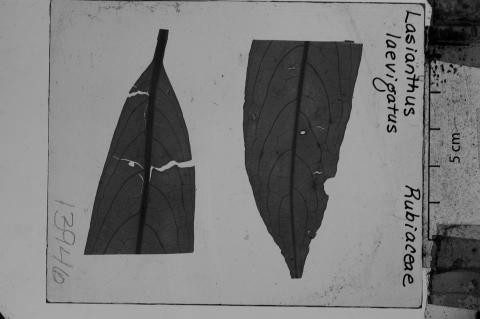 Lasianthus
laevigatus
Rubiaceae
5 cm
13946